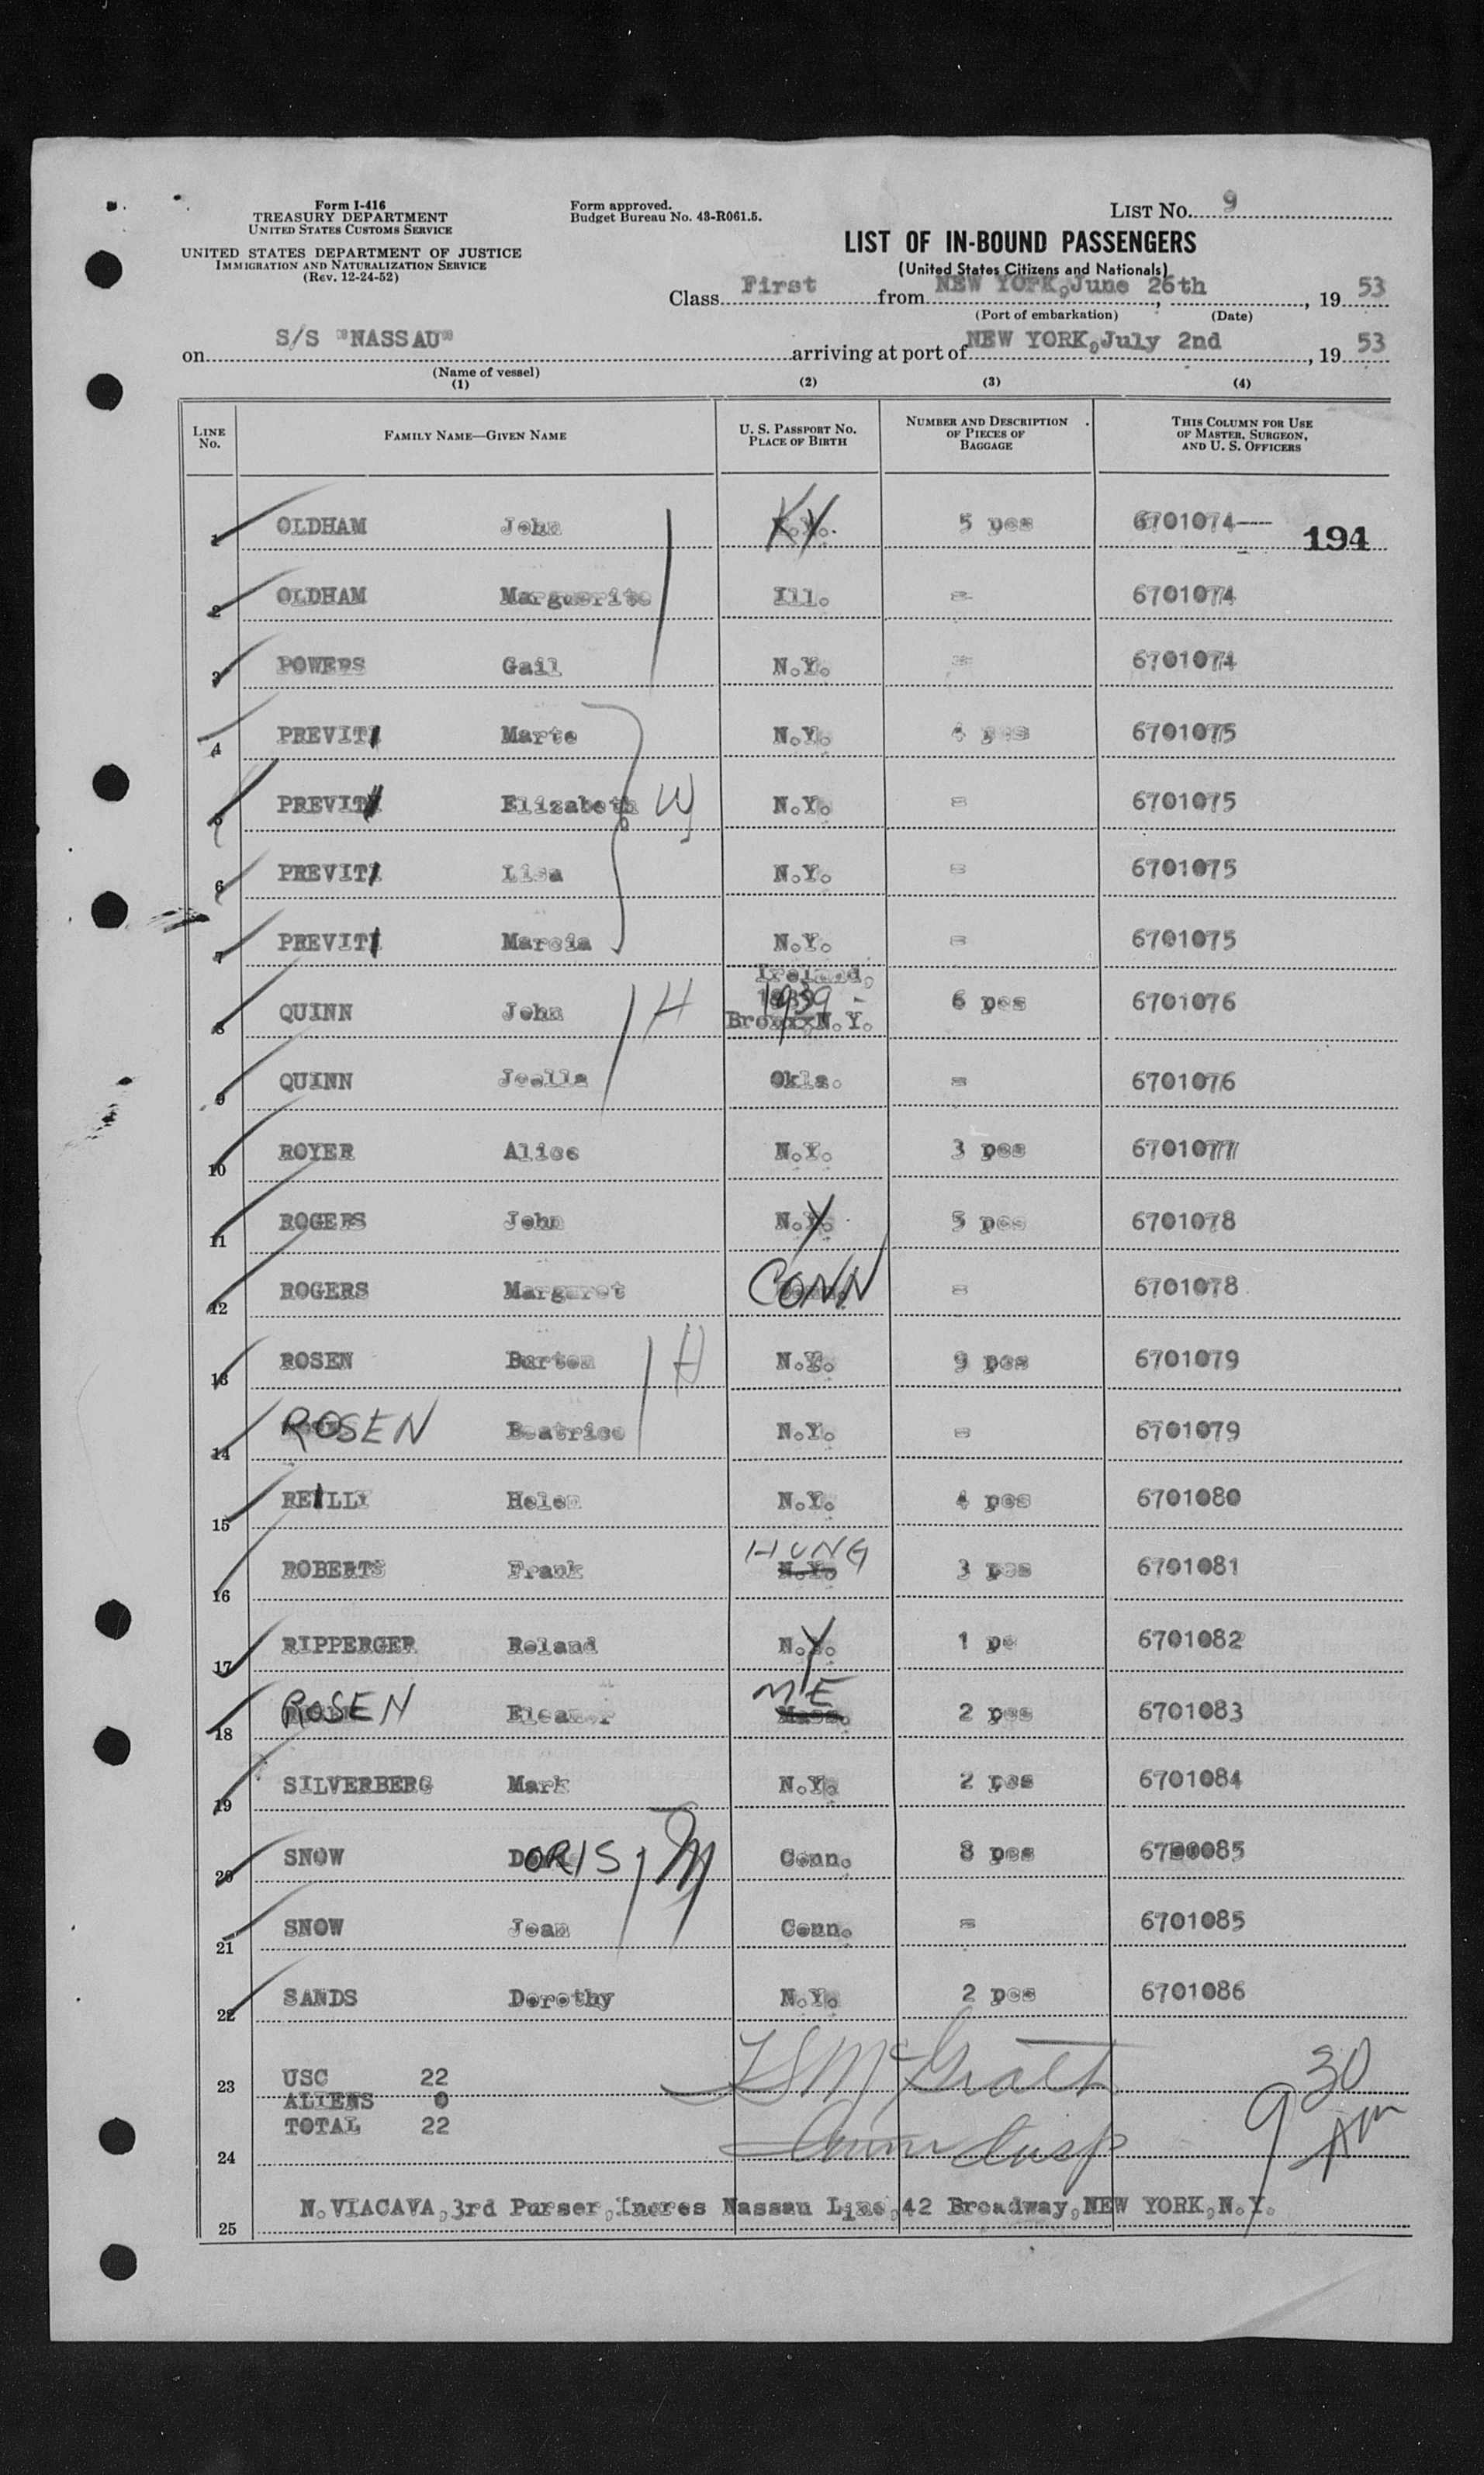 Form I-416
TREASURY DEPARTMENT
UNITED STATES CUSTOMS SERVICE
UNITED STATES DEPARTMENT OF JUSTICE
IMMIGRATION AND NATURALIZATION SERVICE
(Rev. 12-24-52)
Form approved.
Budget Bureau No. 43-R061.5.
LIST No. 9
LIST OF IN-BOUND PASSENGERS
(United States Citizens and Nationals)
Class First from NEW YORK, June 26th, 19 53
(Port of embarkation) (Date)
on S/S "NASSAU" arriving at port of NEW YORK, July 2nd, 19 53
(Name of vessel)
(1) (2) (3) (4)
LINE No. FAMILY NAME—GIVEN NAME U. S. PASSPORT No. PLACE OF BIRTH NUMBER AND DESCRIPTION OF PIECES OF BAGGAGE THIS COLUMN FOR USE OF MASTER, SURGEON, AND U. S. OFFICERS
1 OLDHAM John KY 5 pcs 6701074 194
2 OLDHAM Marguerite Ill. = 6701074
3 POWERS Gail N.Y. = 6701074
4 PREVITI Marte N.Y. 4 pcs 6701075
5 PREVITI Elizabeth W N.Y. = 6701075
6 PREVITI Lisa N.Y. = 6701075
7 PREVITI Marcia N.Y. = 6701075
8 QUINN John H Ireland, 1939 - Bronx N.Y. 6 pcs 6701076
9 QUINN Joella Okla. = 6701076
10 ROYER Alice N.Y. 3 pcs 6701077
11 ROGERS John N.Y. 5 pcs 6701078
12 ROGERS Margaret CONN = 6701078
13 ROSEN Burton H N.Y. 9 pcs 6701079
14 ROSEN Beatrice N.Y. = 6701079
15 REILLY Helen N.Y. 4 pcs 6701080
16 ROBERTS Frank HUNG N.Y. 3 pcs 6701081
17 RIPPERGER Roland N.Y. 1 pc 6701082
18 ROSEN Eleanor ME Mass. 2 pcs 6701083
19 SILVERBERG Mark N.Y. 2 pcs 6701084
20 SNOW DORIS M Conn. 8 pcs 6700085
21 SNOW Jean Conn. = 6701085
22 SANDS Dorothy N.Y. 2 pcs 6701086
23 USC 22
ALIENS 0
TOTAL 22
McGrath
Imm Insp
9 30 AM
24
25 N. VIACAVA, 3rd Purser, Incres Nassau Line, 42 Broadway, NEW YORK, N.Y.